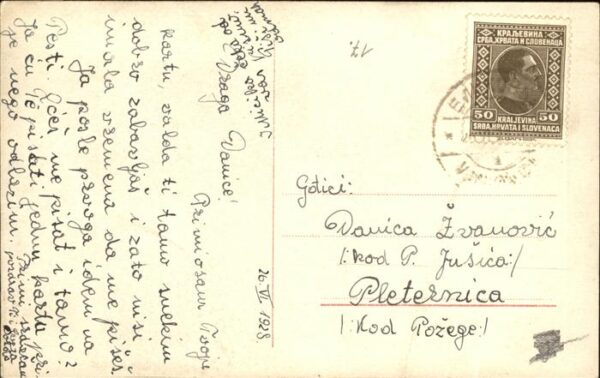 26. VI 1928
Draga Danice!
Primio sam Tvoju
kartu, valda ti tamo s nekim
dobro zabavljaš i zato nisi
imala vremena da me pišeš.
Ja posle prvoga idem na
Pesti. Ćeš me pisat i tamo?
Ja ću Te pisati jednu kartu pri
je nego odlazim.
Prim srdačan
pozdrav
17.
КРАЉЕВИНА
СРБА, ХРВАТА И СЛОВЕНАЦА
50 50
KRALJEVINA
SRBA, HRVATA I SLOVENACA
Gđici:
Danica Žvanović
/: kod P. Jušića :/
Pleternica
/: Kod Požege :/